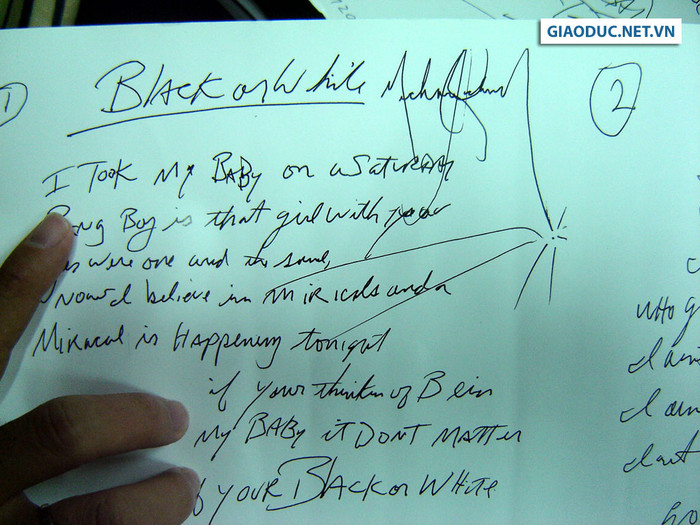 GIAODUC.NET.VN
1
BLACK or White
2
I Took My BABy on a SATURDAY
Bang Boy is that girl with you
es were one and the same,
Now I believe in MIRICALS and a
MIRACAL is HAppening tonight
if your thinken of Bein
My BABy it DONT MATTER
if YOUR BLACK or WHITE
WHO g